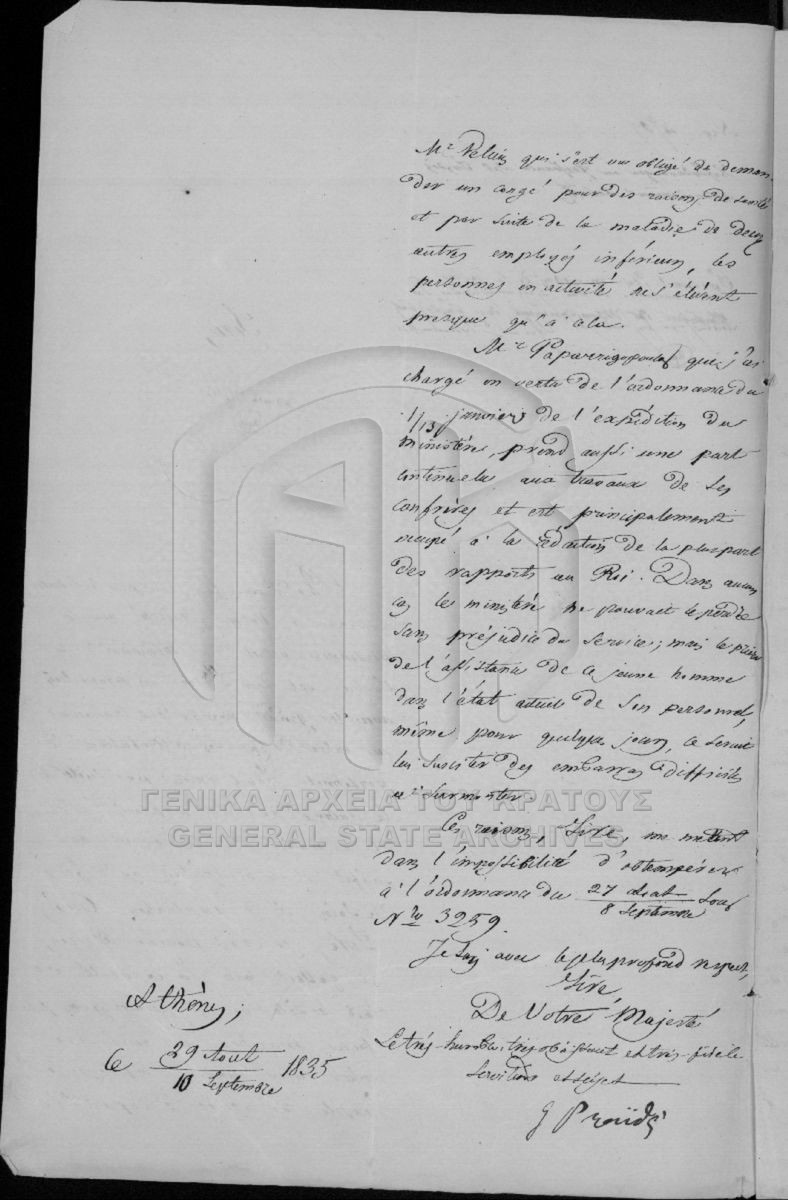 Mr qui s'est vu obligé de deman-
der un congé pour des raisons de santé
et par suite de la maladie de deux
autres employés inférieurs, les
personnes en activité ne s'élèvent
presque qu'à cela.
Mr Paparrigopoulos que j'ai
chargé en vertu de l'ordonnance du
1/13 janvier de l'expédition du
ministère, prend aussi une part
continuelle aux travaux de ses
confrères et est principalement
occupé à la rédaction de la plus part
des rapports au Roi. Dans aucun
cas le ministère ne pouvait le perdre
sans préjudice du service; mais le priver
de l'assistance de ce jeune homme
dans l'état actuel de son personnel,
même pour quelques jours, ce serait
lui susciter des embarras difficiles
à surmonter.
Ces raisons, Sire, me mettent
dans l'impossibilité d'obtempérer
à l'ordonnance du 27 août / 8 Septembre sous
Nro 3259.
Je suis avec le plus profond respect,
Sire,
De Votre Majesté
Le très-humble, très obéissant et très-fidèle
serviteur et sujet
G Praïdis
Athènes,
Ce 29 Aout / 10 Septembre 1835
ΓΕΝΙΚΑ ΑΡΧΕΙΑ ΤΟΥ ΚΡΑΤΟΥΣ
GENERAL STATE ARCHIVES